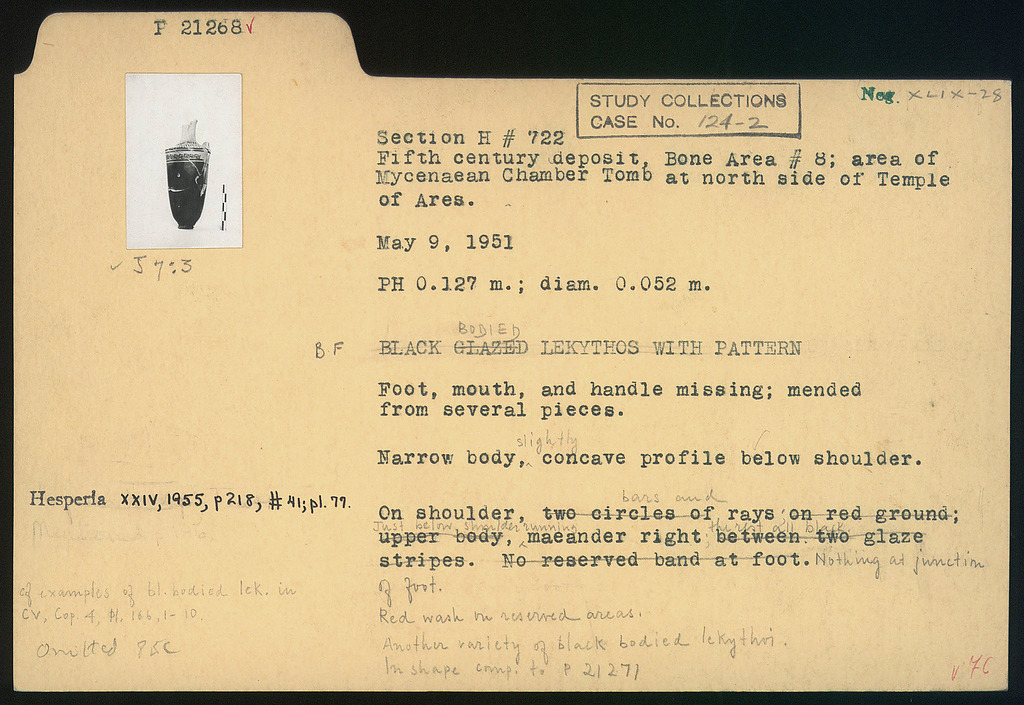 P 21268 ✓
STUDY COLLECTIONS
CASE No. 124-2
Neg. XLIX-28
Section H # 722
Fifth century deposit, Bone Area # 8; area of
Mycenaean Chamber Tomb at north side of Temple
of Ares.
May 9, 1951
PH 0.127 m.; diam. 0.052 m.
BODIED
BF BLACK GLAZED LEKYTHOS WITH PATTERN
Foot, mouth, and handle missing; mended
from several pieces.
slightly
Narrow body, concave profile below shoulder.
Hesperia XXIV, 1955, p 218, # 41; pl. 77.
bars and
On shoulder, two circles of rays on red ground;
Just below shoulder running the rest all black
upper body, maeander right between two glaze
stripes. No reserved band at foot. Nothing at junction
of foot.
Red wash on reserved areas.
Another variety of black bodied lekythoi.
In shape comp. to P 21271
cf examples of bl. bodied lek. in
CV, Cop. 4, Pl. 166, 1-10.
Omitted
v 76